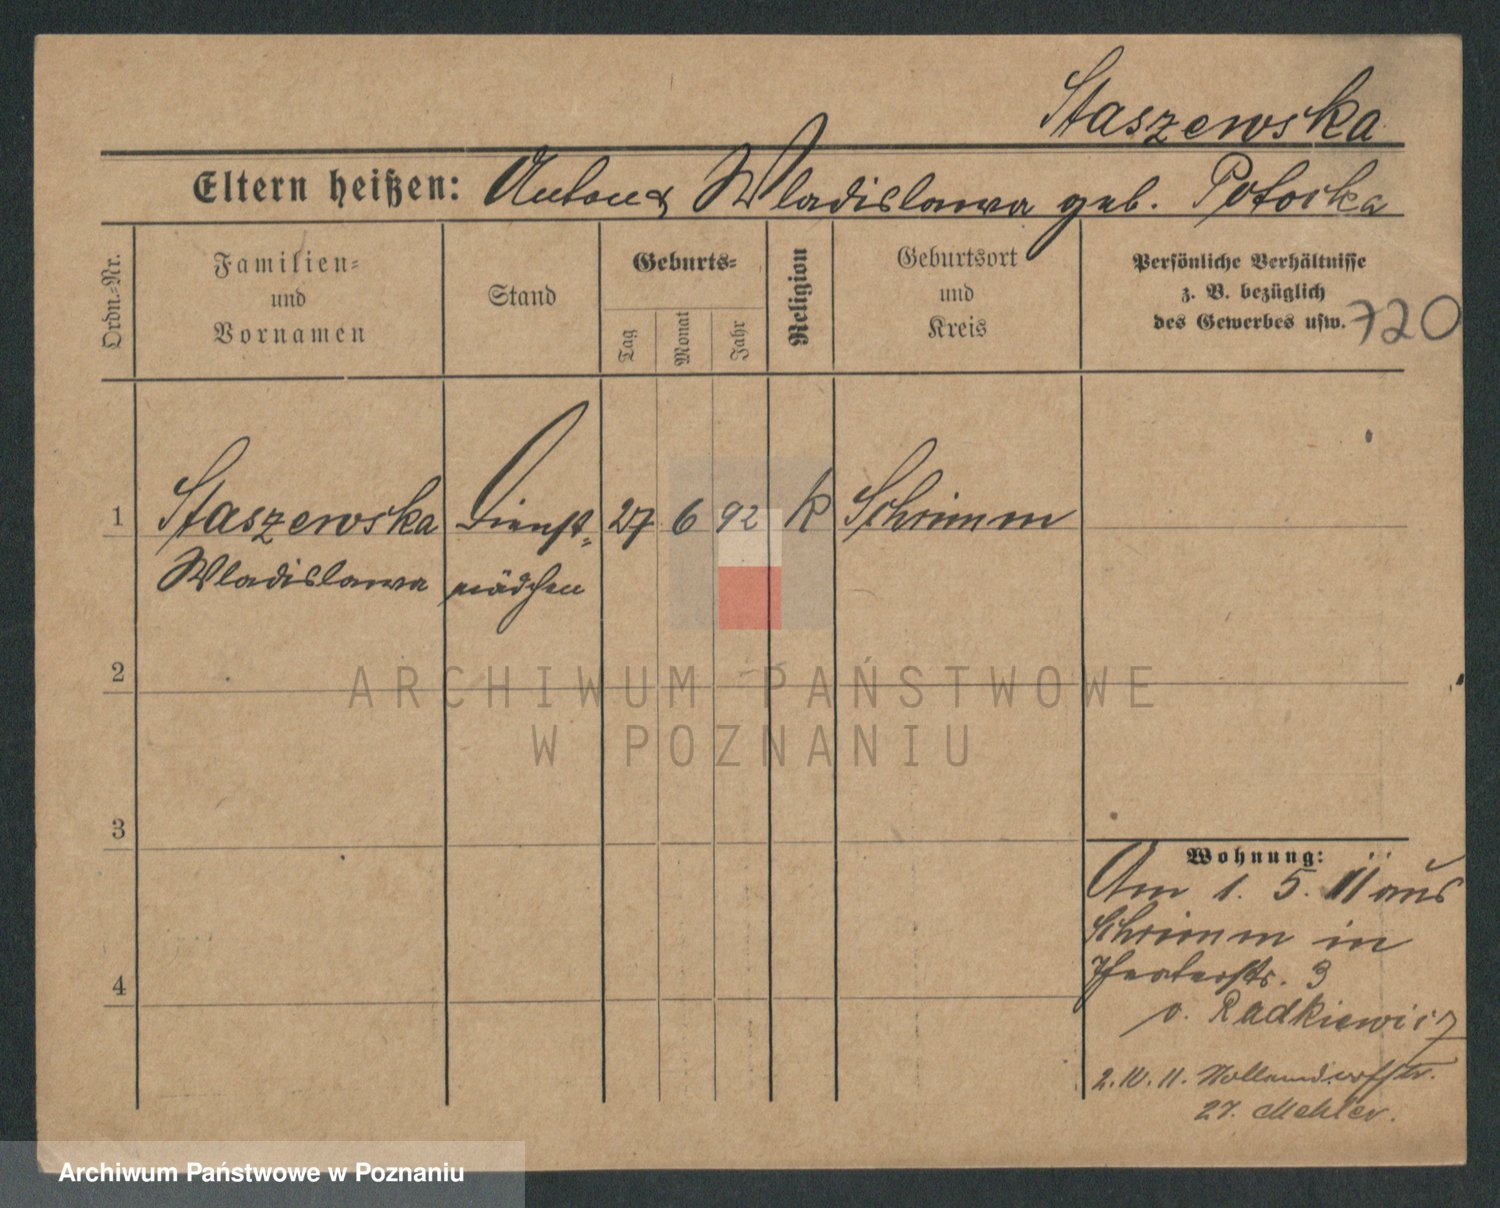 Staszewska
Eltern heißen: Anton & Wladislawa geb. Potocka
Ordn.-Nr.
Familien-
und
Vornamen
Stand
Geburts-
Tag
Monat
Jahr
Religion
Geburtsort
und
Kreis
Persönliche Verhältnisse
z. B. bezüglich
des Gewerbes usw.
720
1 Staszewska Dienst- 27 6 92 K Schrimm
Wladislawa mädchen
2
3
4
Wohnung:
Am 1. 5. 11 aus
Schrimm in
3
v. Radkiewicz
2. 11.
27. Mehler.
ARCHIWUM PAŃSTWOWE
W POZNANIU
Archiwum Państwowe w Poznaniu